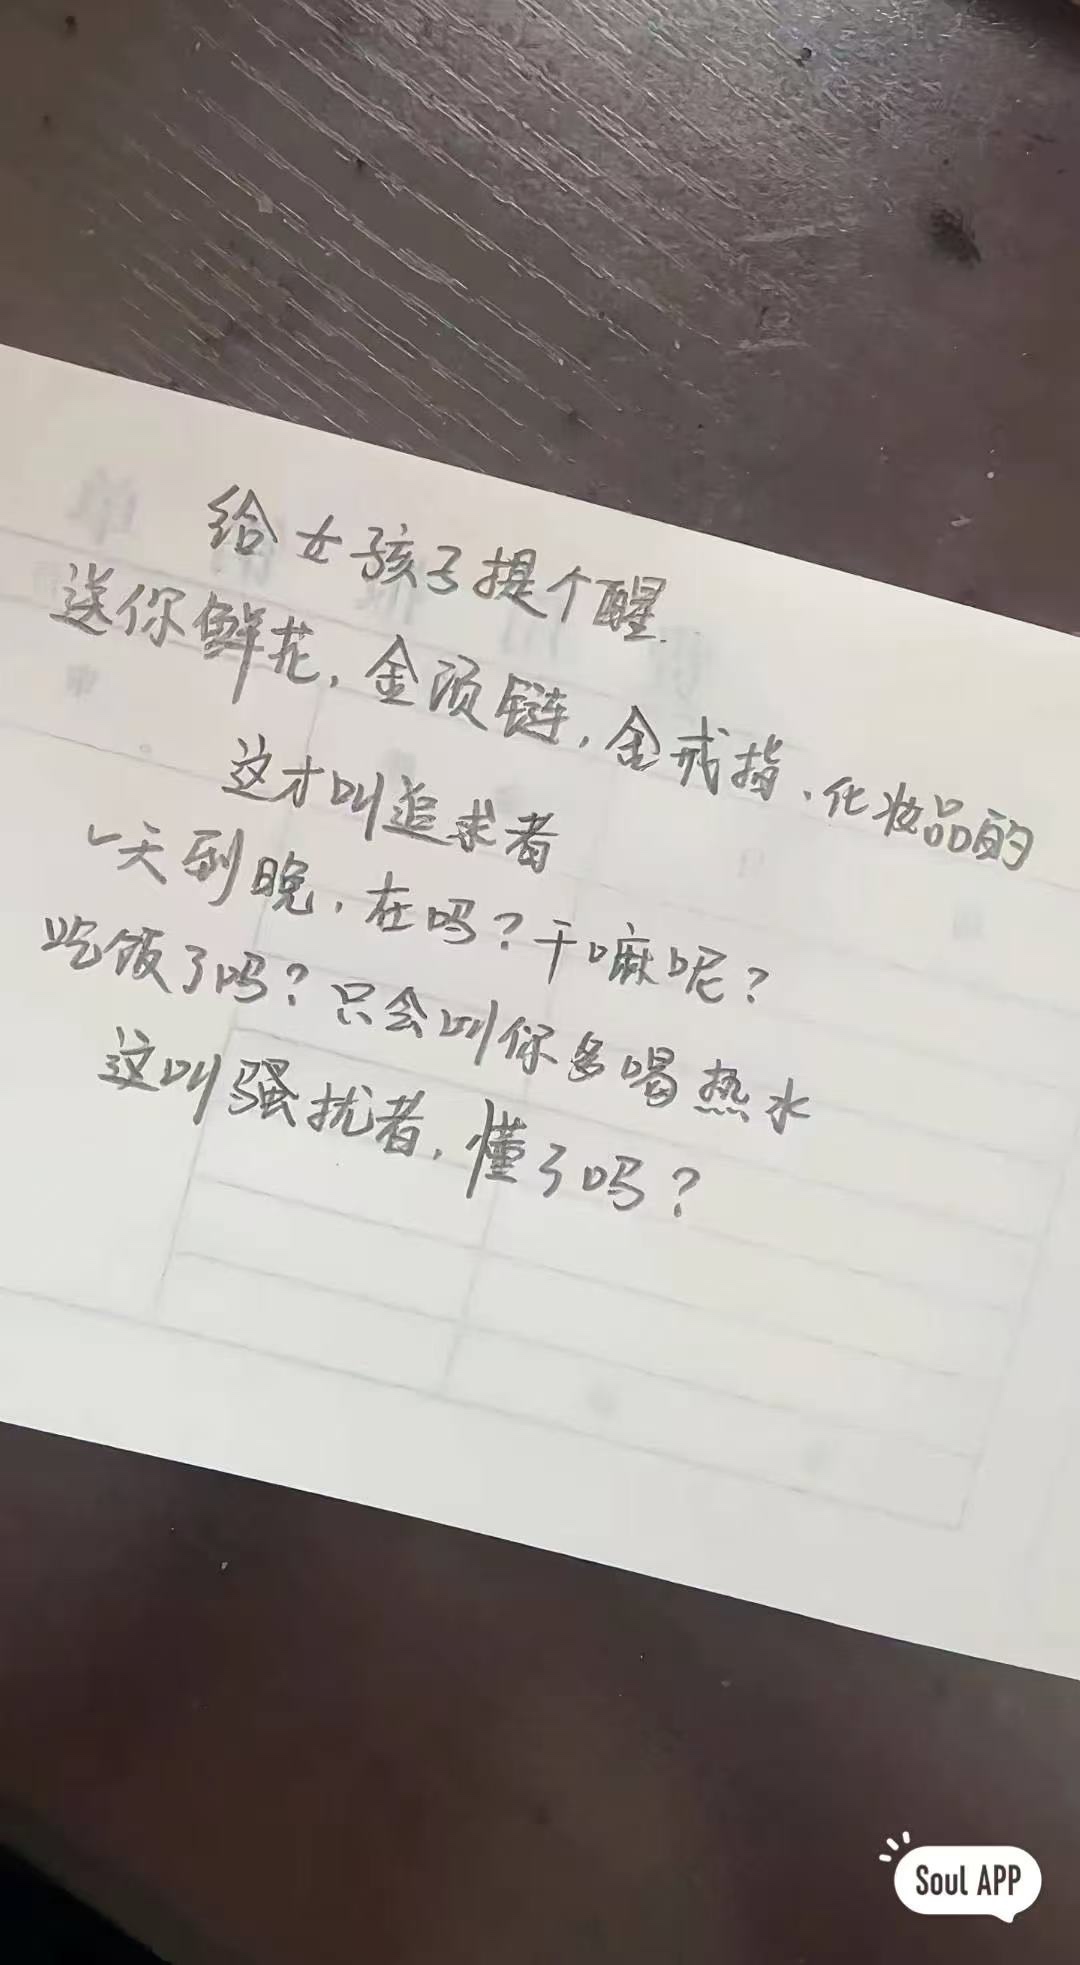 给女孩子提个醒.
送你鲜花,金项链,金戒指、化妆品的
这才叫追求者
一天到晚,在吗?干嘛呢?
吃饭了吗?只会叫你多喝热水
这叫骚扰者,懂了吗?
Soul APP